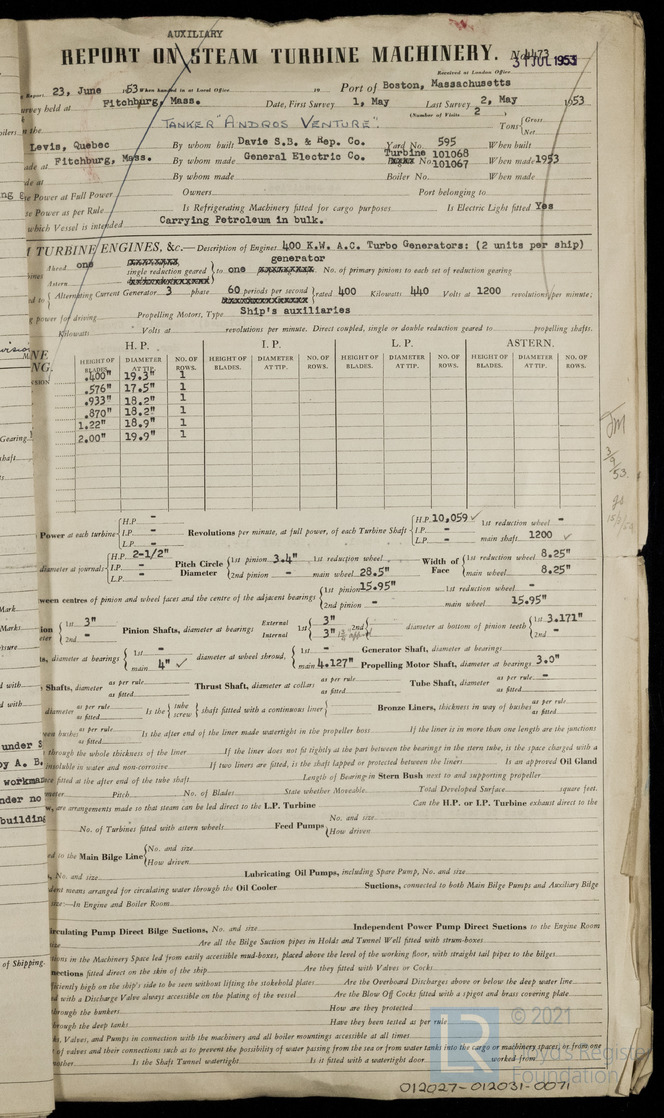 AUXILIARY
REPORT ON STEAM TURBINE MACHINERY. No. 4473
31 JUL 1953
Received at London Office
23, June 1953 When handed in at Local Office 19 Port of Boston, Massachusetts
Survey held at Fitchburg, Mass. Date, First Survey 1, May Last Survey 2, May 1953
(Number of Visits 2
on the TANKER "ANDROS VENTURE". Tons Gross Net
Levis, Quebec By whom built Davie S.B. & Rep. Co. Yard No. 595 When built
Fitchburg, Mass. By whom made General Electric Co. Turbine No. 101068 101067 When made 1953
By whom made Boiler No. When made
Power at Full Power Owners Port belonging to
Power as per Rule Is Refrigerating Machinery fitted for cargo purposes. Is Electric Light fitted Yes
which Vessel is intended Carrying Petroleum in bulk.
TURBINE ENGINES, &c.—Description of Engines. 400 K.W. A.C. Turbo Generators: (2 units per ship)
generator
Ahead one single reduction geared to one No. of primary pinions to each set of reduction gearing
Astern
Alternating Current Generator 3 phase 60 periods per second rated 400 Kilowatts 440 Volts at 1200 revolutions per minute;
power for driving Propelling Motors, Type Ship's auxiliaries
Kilowatts Volts at revolutions per minute. Direct coupled, single or double reduction geared to propelling shafts.
H. P. I. P. L. P. ASTERN.
HEIGHT OF BLADES. DIAMETER AT TIP. NO. OF ROWS. HEIGHT OF BLADES. DIAMETER AT TIP. NO. OF ROWS. HEIGHT OF BLADES. DIAMETER AT TIP. NO. OF ROWS. HEIGHT OF BLADES. DIAMETER AT TIP. NO. OF ROWS.
.400" 19.3" 1
.576" 17.5" 1
.933" 18.2" 1
.870" 18.2" 1
1.22" 18.9" 1
2.00" 19.9" 1
Power at each turbine H.P. - I.P. - L.P. - Revolutions per minute, at full power, of each Turbine Shaft H.P. 10,059 ✓ I.P. - L.P. - 1st reduction wheel - main shaft 1200 ✓
diameter at journals H.P. 2-1/2" I.P. - L.P. - Pitch Circle Diameter 1st pinion 3.4" 2nd pinion - 1st reduction wheel main wheel 28.5" Width of Face 1st reduction wheel 8.25" main wheel 8.25"
centres of pinion and wheel faces and the centre of the adjacent bearings 1st pinion 15.95" 2nd pinion - 1st reduction wheel - main wheel 15.95"
1st 3" 2nd - Pinion Shafts, diameter at bearings External Internal 1st 3" 3" 2nd diameter at bottom of pinion teeth 1st 3.171" 2nd -
diameter at bearings 1st - main 4" ✓ diameter at wheel shroud, 1st - main 4.127" Generator Shaft, diameter at bearings Propelling Motor Shaft, diameter at bearings 3.0"
Shafts, diameter as per rule as fitted Thrust Shaft, diameter at collars as per rule as fitted Tube Shaft, diameter as per rule - as fitted
diameter as per rule as fitted Is the tube screw shaft fitted with a continuous liner Bronze Liners, thickness in way of bushes as per rule as fitted
bushes as per rule as fitted Is the after end of the liner made watertight in the propeller boss If the liner is in more than one length are the junctions
through the whole thickness of the liner If the liner does not fit tightly at the part between the bearings in the stern tube, is the space charged with a
insoluble in water and non-corrosive If two liners are fitted, is the shaft lapped or protected between the liners Is an approved Oil Gland
fitted at the after end of the tube shaft Length of Bearing in Stern Bush next to and supporting propeller
Pitch No. of Blades State whether Moveable Total Developed Surface square feet.
are arrangements made so that steam can be led direct to the L.P. Turbine Can the H.P. or I.P. Turbine exhaust direct to the
No. of Turbines fitted with astern wheels Feed Pumps No. and size How driven
to the Main Bilge Line No. and size How driven
No. and size Lubricating Oil Pumps, including Spare Pump, No. and size
means arranged for circulating water through the Oil Cooler Suctions, connected to both Main Bilge Pumps and Auxiliary Bilge
In Engine and Boiler Room
Circulating Pump Direct Bilge Suctions, No. and size Independent Power Pump Direct Suctions to the Engine Room
Are all the Bilge Suction pipes in Holds and Tunnel Well fitted with strum-boxes
in the Machinery Space led from easily accessible mud-boxes, placed above the level of the working floor, with straight tail pipes to the bilges
fitted direct on the skin of the ship Are they fitted with Valves or Cocks
high on the ship's side to be seen without lifting the stokehold plates Are the Overboard Discharges above or below the deep water line
with a Discharge Valve always accessible on the plating of the vessel Are the Blow Off Cocks fitted with a spigot and brass covering plate
through the bunkers How are they protected
through the deep tanks Have they been tested as per rule
Valves, and Pumps in connection with the machinery and all boiler mountings accessible at all times
of valves and their connections such as to prevent the possibility of water passing from the sea or from water tanks into the cargo or machinery spaces, or from one
another Is the Shaft Tunnel watertight Is it fitted with a watertight door worked from
© 2021
Lloyd's Register
Foundation
012027-012031-0071